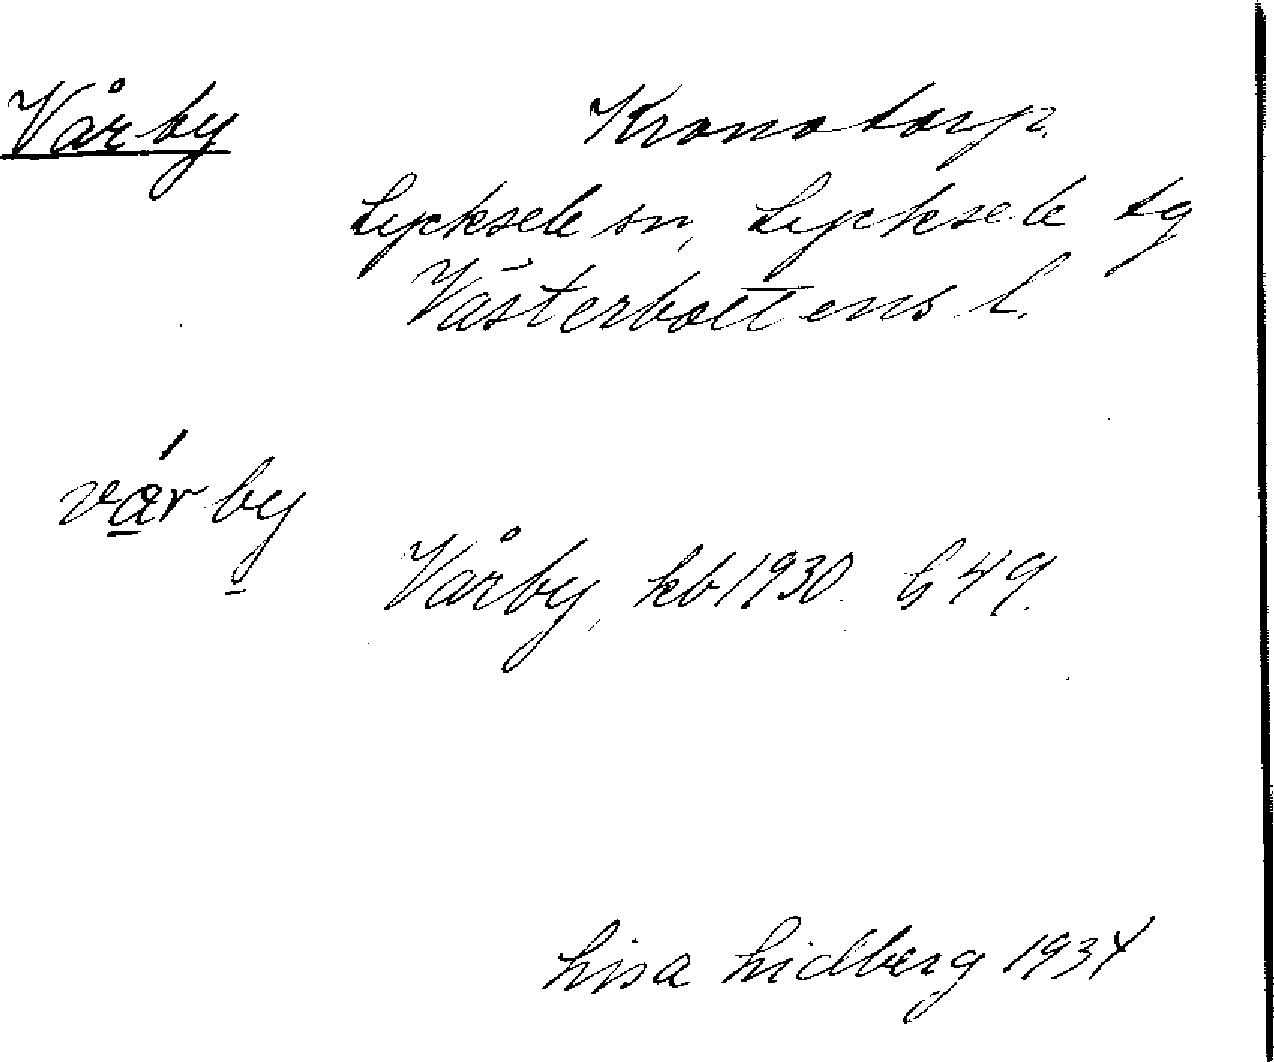 Vårby Kronotorp.
Lycksele sn, Lycksele tg
Västerbottens l.
vár by
Vårby, kb 1930. G 49.
Lisa Lidberg 1934